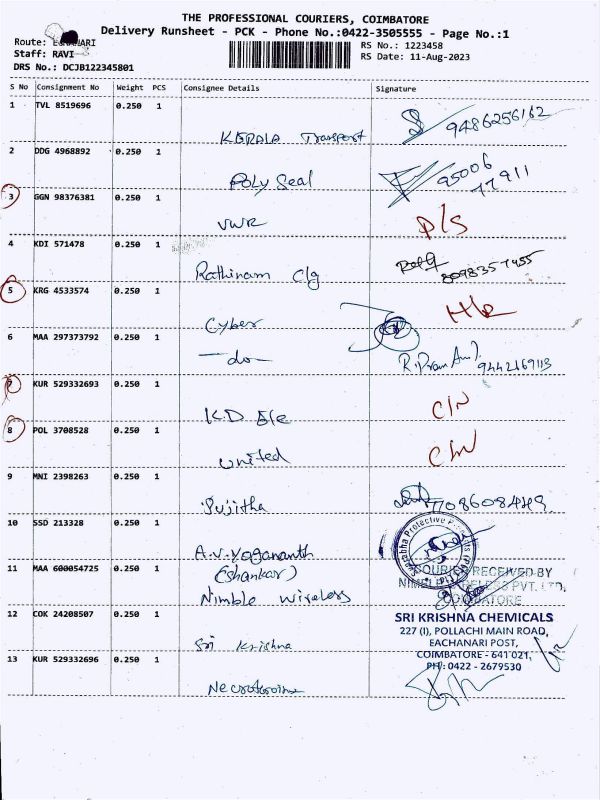 THE PROFESSIONAL COURIERS, COIMBATORE
Delivery Runsheet - PCK - Phone No.:0422-3505555 - Page No.:1
Route:
Staff: RAVI
DRS No.: DCJB122345801
RS No.: 1223458
RS Date: 11-Aug-2023
S No Consignment No Weight PCS Consignee Details Signature
1 TVL 8519696 0.250 1
KERALA Transport 9486256162
2 DDG 4968892 0.250 1
Poly Seal 95006
77911
3 GGN 98376381 0.250 1
VWR P/S
4 KDI 571478 0.250 1
Rathinam Clg 8098357455
5 KRG 4533574 0.250 1
Cyber
6 MAA 297373792 0.250 1
-do- 9442169113
7 KUR 529332693 0.250 1
K.D Ele C/N
8 POL 3708528 0.250 1
United C/N
9 MNI 2398263 0.250 1
Pujitha
10 SSD 213328 0.250 1
A.V.Yogananth
11 MAA 600054725 0.250 1
(Shankar)
Nimble Wireless
COURIER RECEIVED BY
NIMBLE WIRELESS PVT. LTD,
COIMBATORE
12 COK 24208507 0.250 1
Sri Krishna
SRI KRISHNA CHEMICALS
227 (I), POLLACHI MAIN ROAD,
EACHANARI POST,
COIMBATORE - 641 021,
PH: 0422 - 2679530
13 KUR 529332696 0.250 1